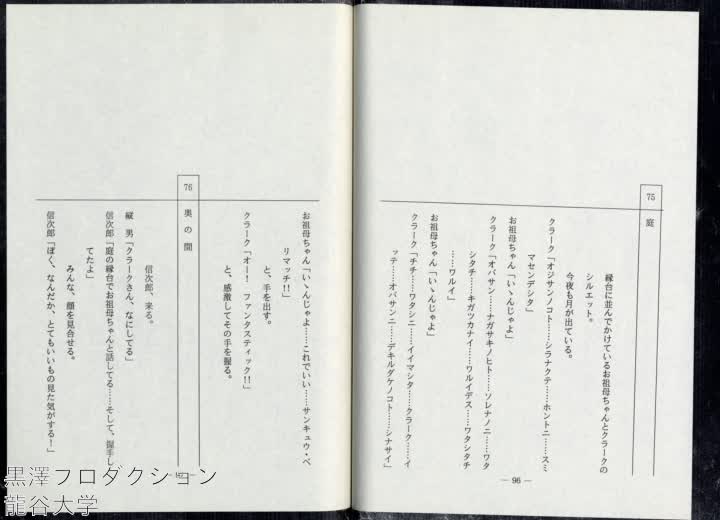 75 庭
縁台に並んでかけているお祖母ちゃんとクラークの
シルエット。
今夜も月が出ている。
クラーク「オジサンノコト……シラナクテ……ホントニ……スミ
マセンデシタ」
お祖母ちゃん「いゝんじゃよ」
クラーク「オバサン……ナガサキノヒト……ソレナノニ……ワタ
シタチ……キガツカナイ……ワルイデス……ワタシタチ
……ワルイ」
お祖母ちゃん「いゝんじゃよ」
クラーク「チチ……ワタシニ……イイマシタ……クラーク……イ
ッテ……オバサンニ……デキルダケノコト……シナサイ」
— 96 —
お祖母ちゃん「いゝんじゃよ……これでいい……サンキュウ・ベ
リマッチ!!」
と、手を出す。
クラーク「オー! ファンタスティック!!」
と、感激してその手を握る。
76 奥の間
信次郎、来る。
縦 男「クラークさん、なにしてる」
信次郎「庭の縁台でお祖母ちゃんと話してる……そして、握手し
てたよ」
みんな、顔を見合せる。
信次郎「ぼく、なんだか、とてもいいもの見た気がする!」
黒澤プロダクション
龍谷大学